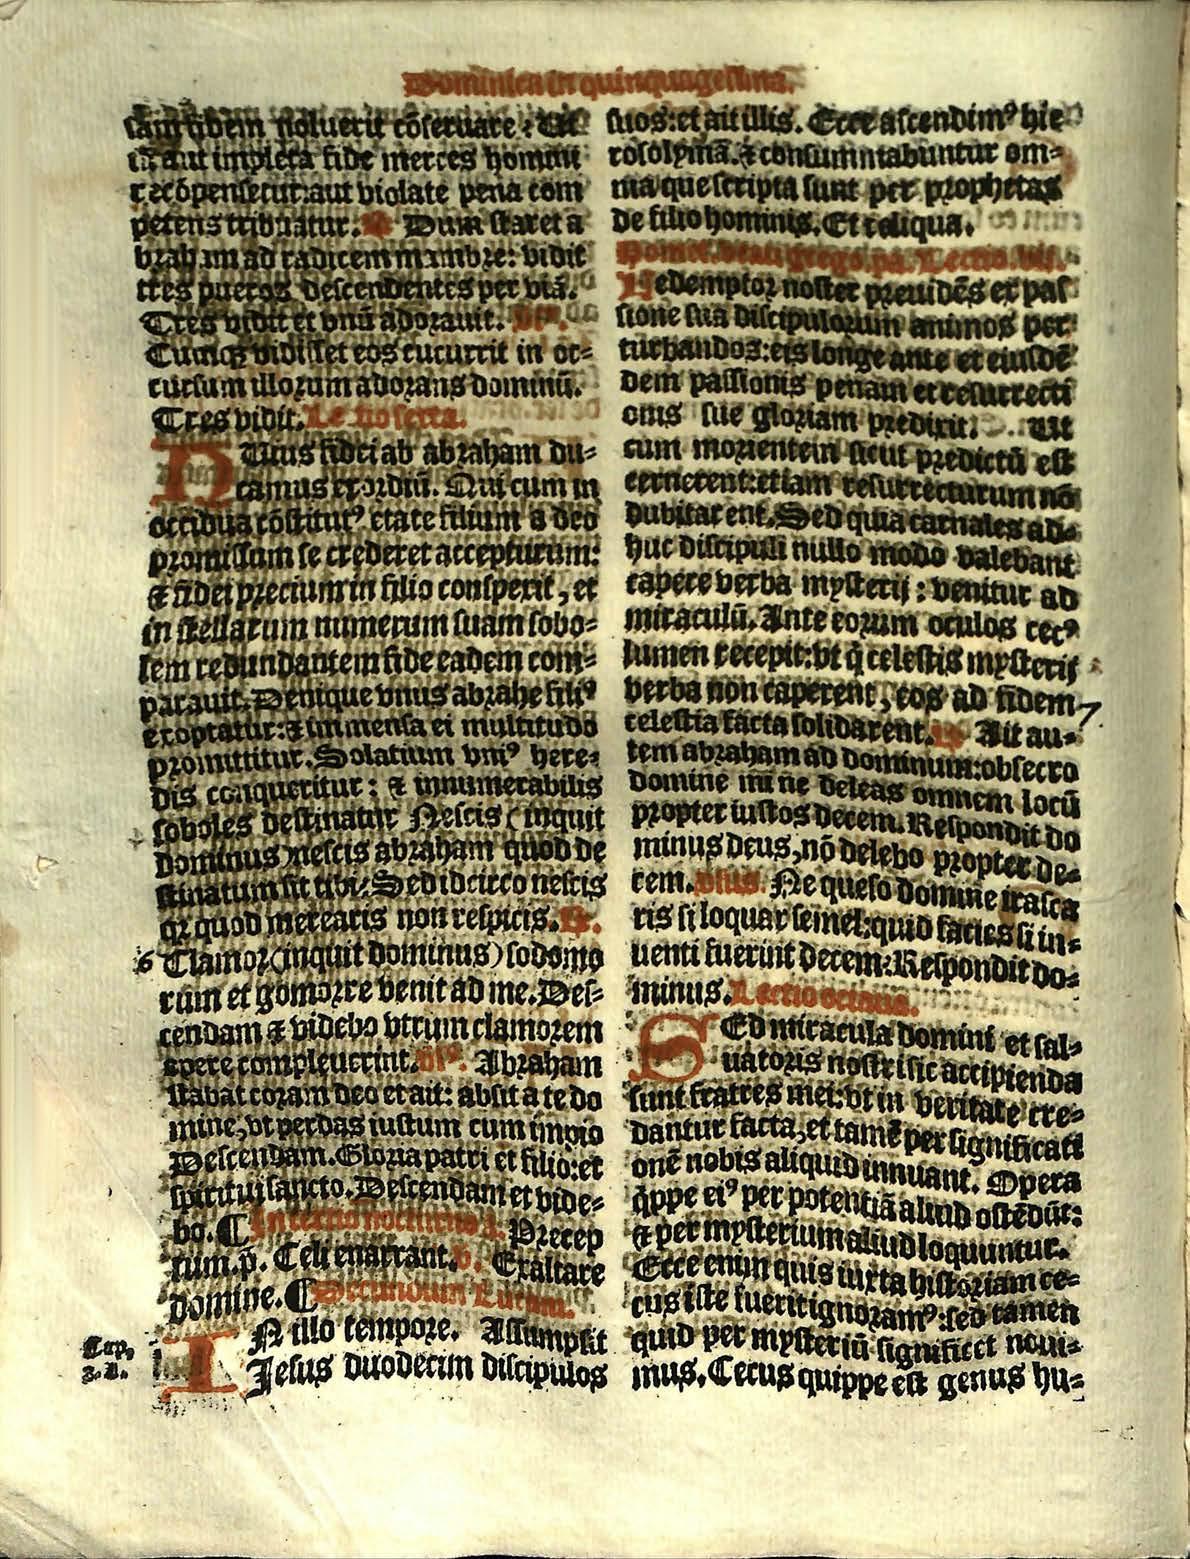 Dominica in quinquagessima.
sam fidem noluerit cõseruare: Ut
aut impleta fide merces homini
recõpensetur: aut violate pena com
petens tribuatur. Dum staret a
braham ad radicem mambre: vidit
tres pueros descendentes per viã.
Tres vidit et vnũ adorauit.
Cumq; vidisset eos cucurrit in oc=
cursum illorum adorans dominũ.
Tres vidit. Lectio sexta.
HUius fidei ab abraham du=
camus exordiũ. Qui cum in
occidua cõstitutꝰ etate filium a deo
promissum se crederet accepturum:
⁊ fidei precium in filio conspexit, et
in stellarum numerum suam sobo=
lem redundantem fide eadem com=
parauit. Denique vnus abrahe filiꝰ
exoptatur: ⁊ immensa ei multitudo
promittitur. Solatium vniꝰ here=
dis conqueritur: ⁊ innumerabilis
soboles destinatur Nescis (inquit
dominus) nescis abraham quod de
stinatum sit tibi: Sed idcirco nescis
qꝛ quod merearis non respicis. R.
6 Clamor (inquit dominus) sodomo
rum et gomorre venit ad me. Des=
cendam ⁊ videbo vtrum clamorem
opere compleuerint. Abraham
stabat coram deo et ait: absit a te do
mine, vt perdas iustum cum impio
Descendam. Gloria patri et filio: et
spiritui sancto. Descendam et vide=
bo. ¶ In tertio nocturno a. Precep
tum. p̃. Celi enarrant. v. Exaltare
domine. ¶ Secundum Lucam.
IN illo tempore. Assumpsit
Jesus duodecim discipulos
Cap.
suos: et ait illis. Ecce ascendimꝰ hie
rosolymã. ⁊ consummabuntur om=
nia que scripta sunt per prophetas
de filio hominis. Et reliqua.
Homel. beati grego. pa. Lectio. vii.
Redemptor noster preuidẽs ex pas
sione sua discipulorum animos per
turbandos: eis longe ante et eiusdẽ
dem passionis penam et resurrecti
onis sue gloriam predixit. Ut
cum morientem sicut predictũ est
cernerent: etiam resurrecturum nõ
dubitarent. Sed quia carnales ad=
huc discipuli nullo modo valebant
capere verba mysterij: venitur ad
miraculũ. Ante eorum oculos cecꝰ
lumen recepit: vt q̃ celestis mysterij
verba non caperent, eos ad fidem
celestia facta solidarent. R. Ait au=
tem abraham ad dominum: obsecro
domine mi ne deleas omnem locũ
propter iustos decem. Respondit do
minus deus, nõ delebo propter de=
cem. vsus. Ne queso domine irasca
ris si loquar semel: quid facies si in=
uenti fuerint decem: Respondit do=
minus. Lectio octaua.
SEd miracula domini et sal=
uatoris nostri sic accipienda
sunt fratres mei: vt in veritate cre=
dantur facta, et tamẽ per significati
onẽ nobis aliquid innuant. Opera
q̃ppe eiꝰ per potentiã aliud ostẽdũt:
⁊ per mysterium aliud loquuntur.
Ecce enim quis iuxta historiam ce=
cus iste fuerit ignoramꝰ: sed tamen
quid per mysteriũ significet noui=
mus. Cecus quippe est genus hu=